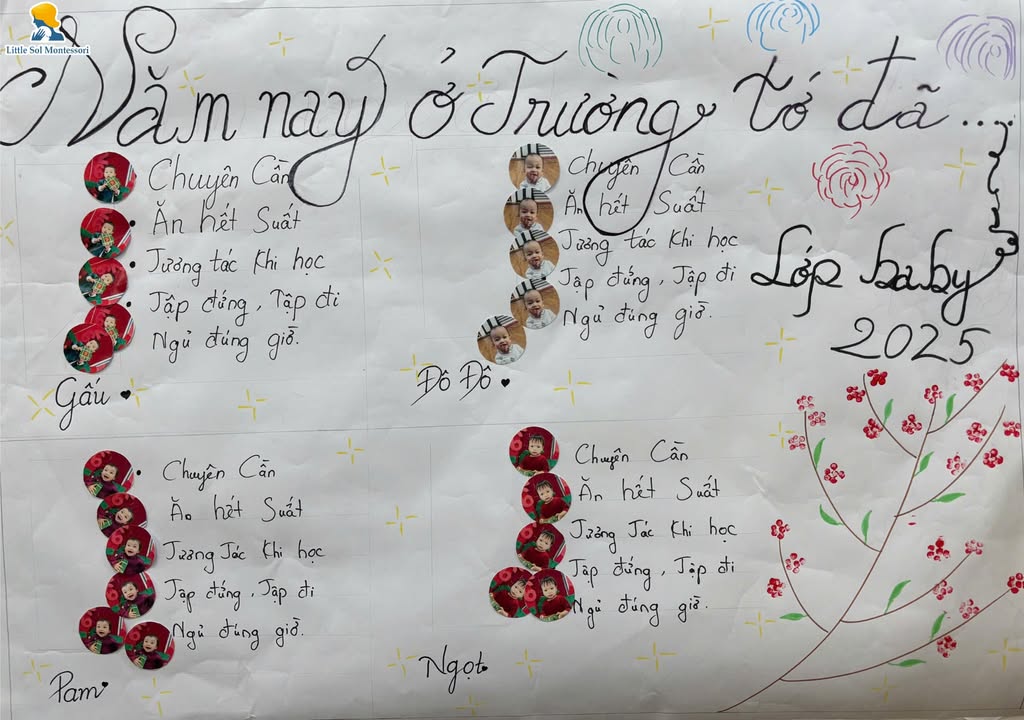 Little Sol Montessori
Năm nay ở Trường tớ đã ....
Lớp baby
2025
Chuyên Cần
Ăn hết Suất
Tương tác Khi học
Tập đứng, Tập đi
Ngủ đúng giờ.
Gấu
Chuyên Cần
Ăn hết Suất
Tương tác Khi học
Tập đứng, Tập đi
Ngủ đúng giờ.
Đô Đô
Chuyên Cần
Ăn hết Suất
Tương Tác Khi học
Tập đứng, Tập đi
Ngủ đúng giờ.
Pam
Chuyên Cần
Ăn hết Suất
Tương Tác Khi học
Tập đứng, Tập đi
Ngủ đúng giờ.
Ngọt